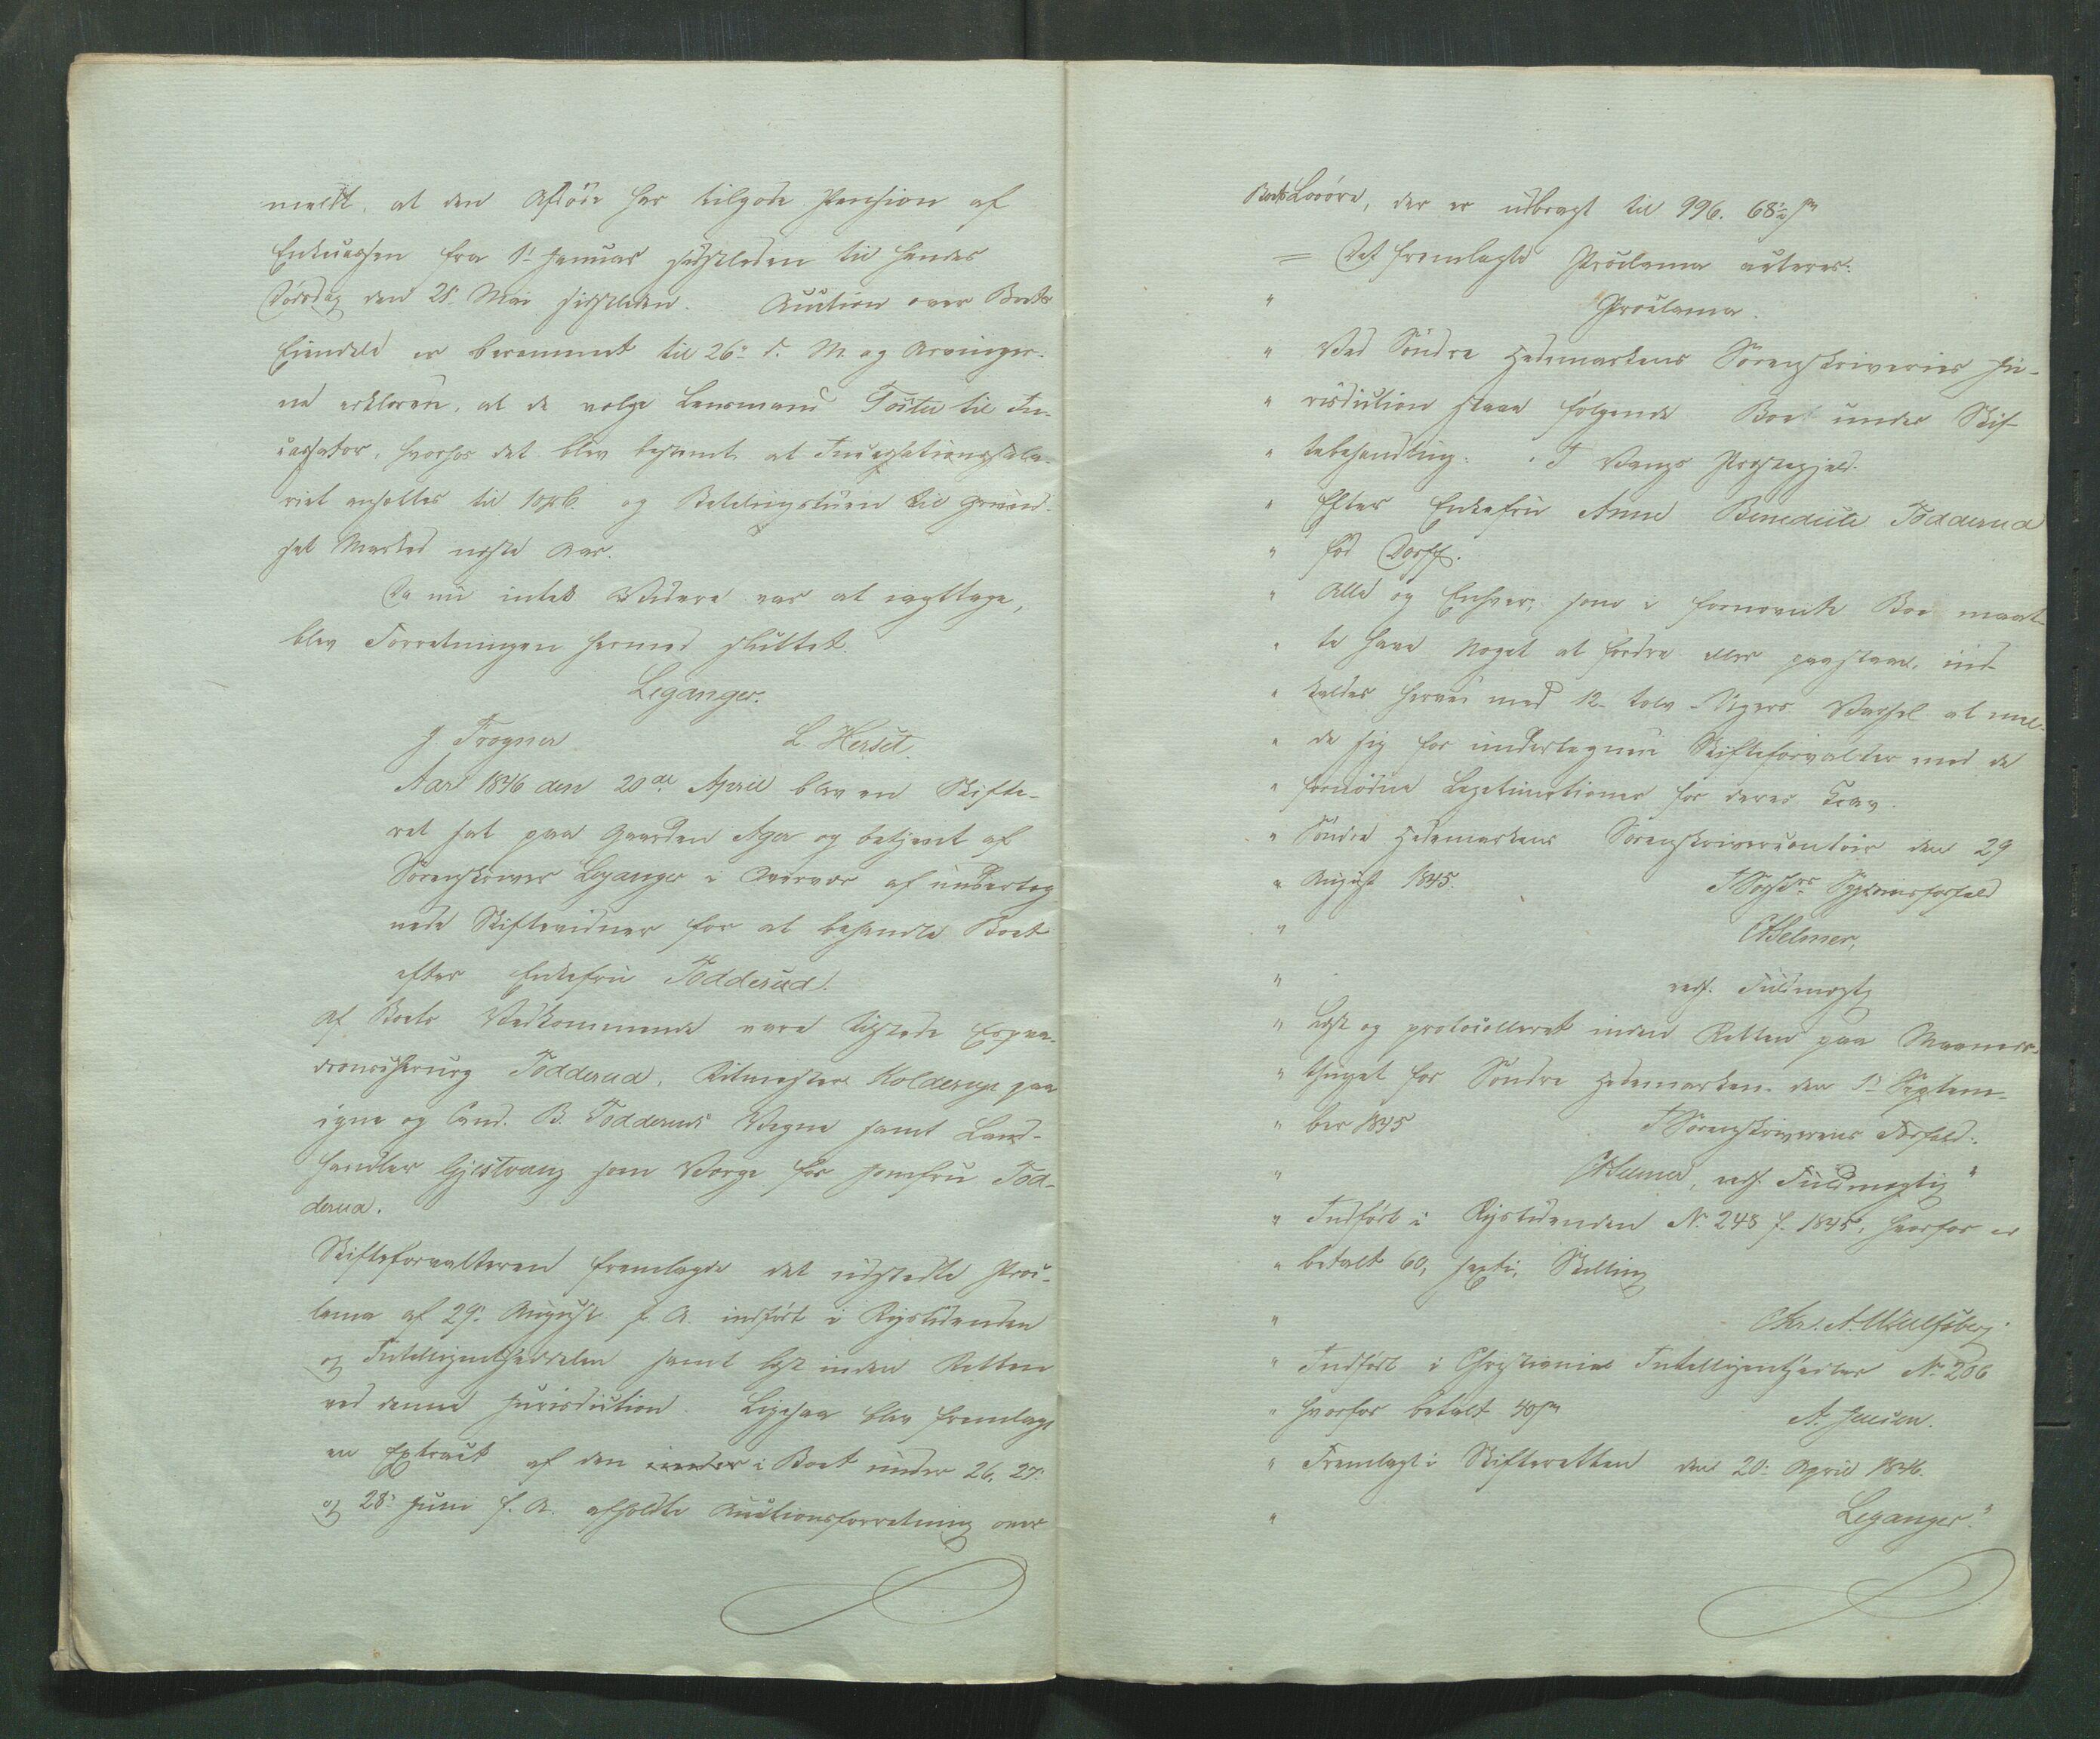 meldt, at den Afdøde har tilgode Pension af
Enkecassen fra 1ste Januar sidstleden til hendes
Dødsdag den 21. Mai sidstleden. Auction over Boets
Eiendele er berammet til 26de d. M. og Arvinger-
ne erklærede, at de valgte Lensmand Toste til In-
cassator, hvorhos det blev bestemt at Incassationssala-
riet ansættes til 10 pC. og Betalingstiden til Grund-
set Marked næste Aar.
Da nu intet Videre var at iagttage,
blev Forretningen hermed sluttet.
Leganger.
J. Frogner L. Herset
Aar 1846 den 20de April blev en Skifte-
ret sat paa Gaarden Ager og betjent af
Sorenskriver Leganger i Overvær af underteg-
nede Skiftevidner for at behandle Boet
efter Enkefru Todderud.
Af Boets Vedkommende vare tilstede Esqva-
dronschirurg Todderud, Ritmester Kolderup paa
egne og Cand. B. Todderuds Vegne samt Land-
handler Gjestvang som Værge for Jomfru Tod-
derud.
Skifteforvalteren fremlagde det udstedte Proc-
lama af 29. August f. A. indført i Rigstidenden
og Intelligentssedelen samt læst inden Retten
ved denne Jurisdiction. Ligesaa blev fremlagt
en Extract af den under i Boet under 26, 27
og 28de Juni f. A. afholdte Auctionsforretning over
Boets Løsøre, der er udbragt til 996. 68½ s
= Det fremlagte Proclama auteres:
" Proclama.
" Ved Søndre Hedemarkens Sorenskriveries Ju-
" risdiction staae følgende Boe under Skif-
" tebehandling: I Vangs Præstegjeld.
" Efter Enkefru Anne Benedicte Todderud
" fød Dorff.
" Alle og Enhver, som i fornævnte Boe maat-
" te have Noget at fordre eller paastaae, ind-
" kaldes herved med 12 tolv Ugers Varsel at mel-
" de sig for undertegnede Skifteforvalter med de
" fornødne Legitimationer for deres Krav.
" Søndre Hedemarkens Sorenskrivercontoir den 29
" August 1845. I Sygdoms forfald
" Selmer,
" edsv. Fuldmægtig
" Læst og protocolleret inden Retten paa Maaneds-
" thinget for Søndre Hedemarken den 1ste Septem-
" ber 1845 I Sorenskriverens Forfald:
" Selmer, edsv. Fuldmægtig"
" Indført i Rigstidenden No 248 f. 1845, hvorfor er
" betalt 60, sexti, Skilling
" Chr. A. Wulfsberg.
" Indført i Christiania Intelligentssedler No 206
" hvorfor betalt 40 s A. Jensen.
" Fremlagt i Skifteretten den 20. April 1846.
" Leganger."